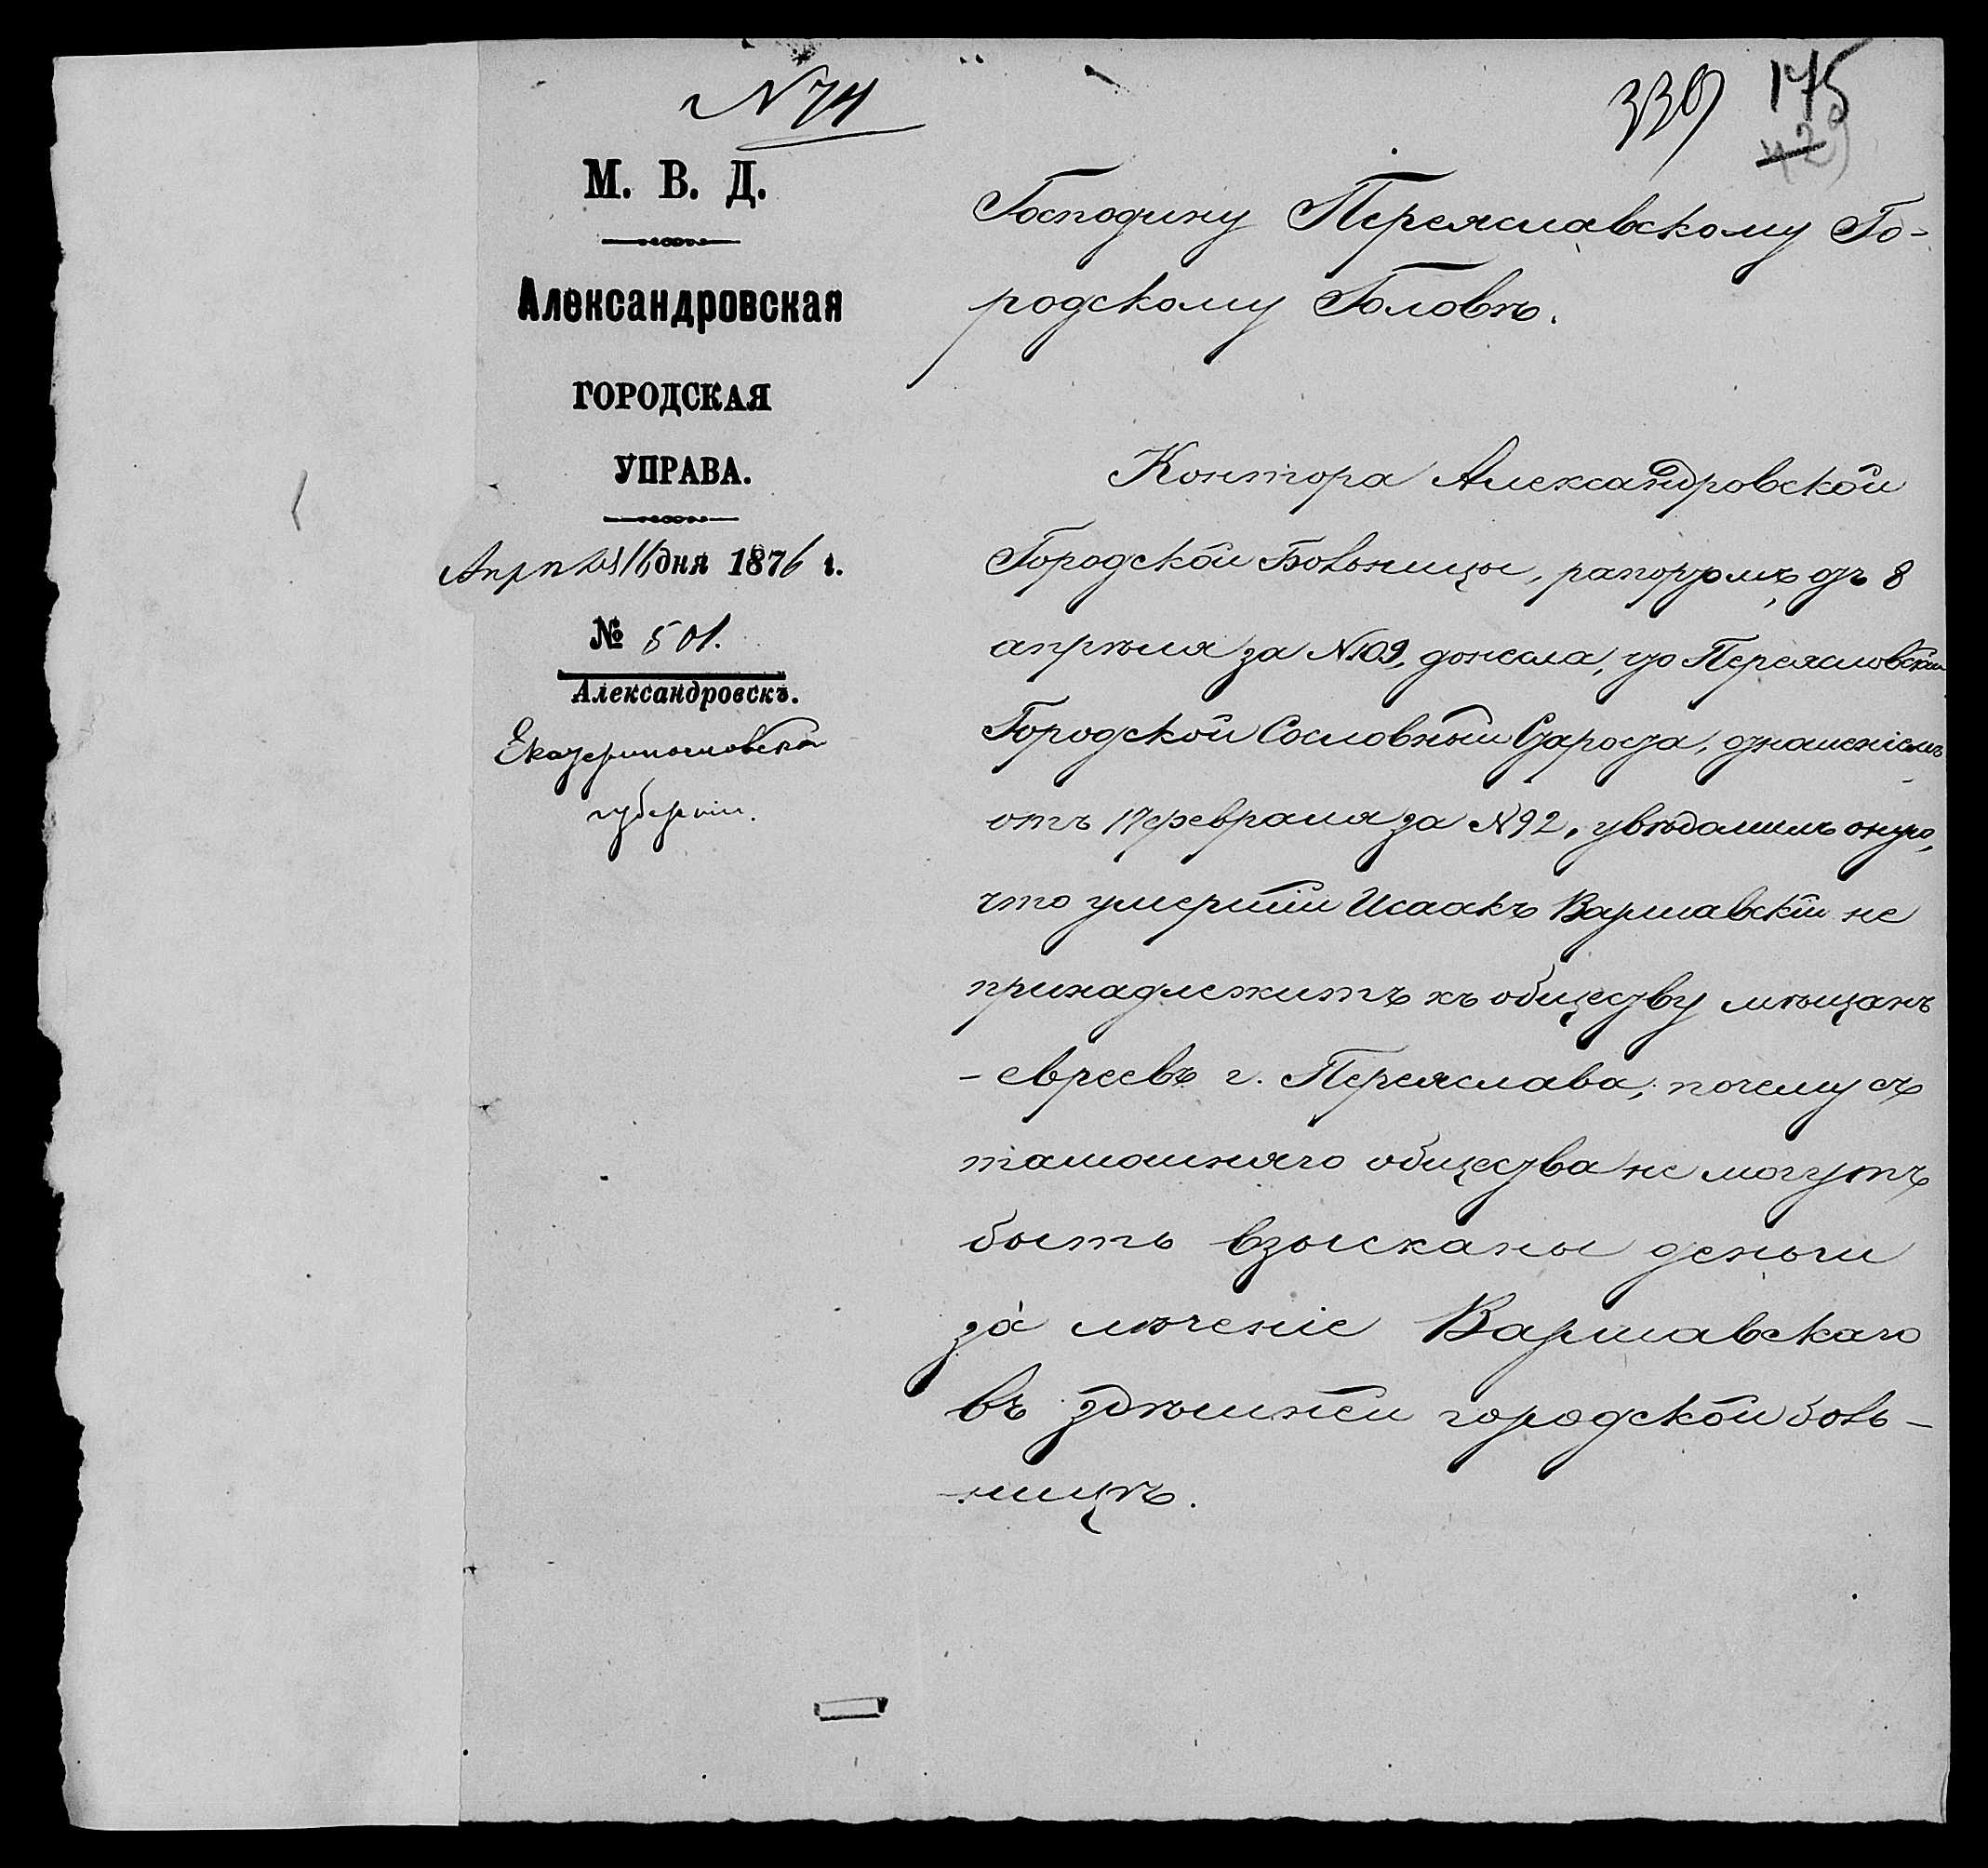 N 74
339 175
429
М. В. Д.
Александровская
ГОРОДСКАЯ
УПРАВА.
Апрѣля 16 дня 1876 г.
№ 501.
Александровскъ.
Екатеринославской
губерніи.
Господину Переяславскому Го-
родскому Головѣ.
Контора Александровской
Городской Больницы, рапортомъ отъ 8
апрѣля за N 109, донесла, что Переяславскій
Городской Сословный Староста, отношеніемъ
отъ 17 февраля за N 92, увѣдомилъ оную,
что умершій Исаакъ Варшавскій не
принадлежитъ къ обществу мѣщанъ
- евреевъ г. Переяслава, почему съ
тамошняго общества не могутъ
быть взысканы деньги
за леченіе Варшавскаго
въ здѣшней городской боль-
ницѣ.